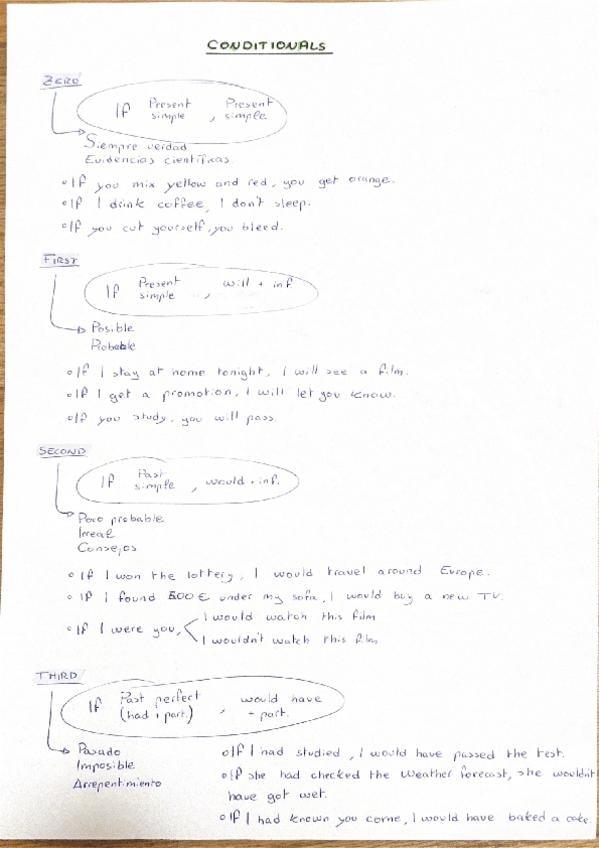 CONDITIONALS
ZERO
If Present simple , Present simple
Siempre verdad
Evidencias científicas
If you mix yellow and red, you get orange.
If I drink coffee, I don't sleep.
If you cut yourself, you bleed.
FIRST
If Present simple , will + inf
Posible
Probable
If I stay at home tonight, I will see a film.
If I get a promotion, I will let you know.
If you study, you will pass.
SECOND
If Past simple , would + inf.
Poco probable
Irreal
Consejos
If I won the lottery, I would travel around Europe.
If I found 500€ under my sofa, I would buy a new TV.
If I were you,
I would watch this film
I wouldn't watch this film
THIRD
If Past perfect (had + part.) , would have + part.
Pasado
Imposible
Arrepentimiento
If I had studied, I would have passed the test.
If she had checked the weather forecast, she wouldn't
have got wet.
If I had known you come, I would have baked a cake.